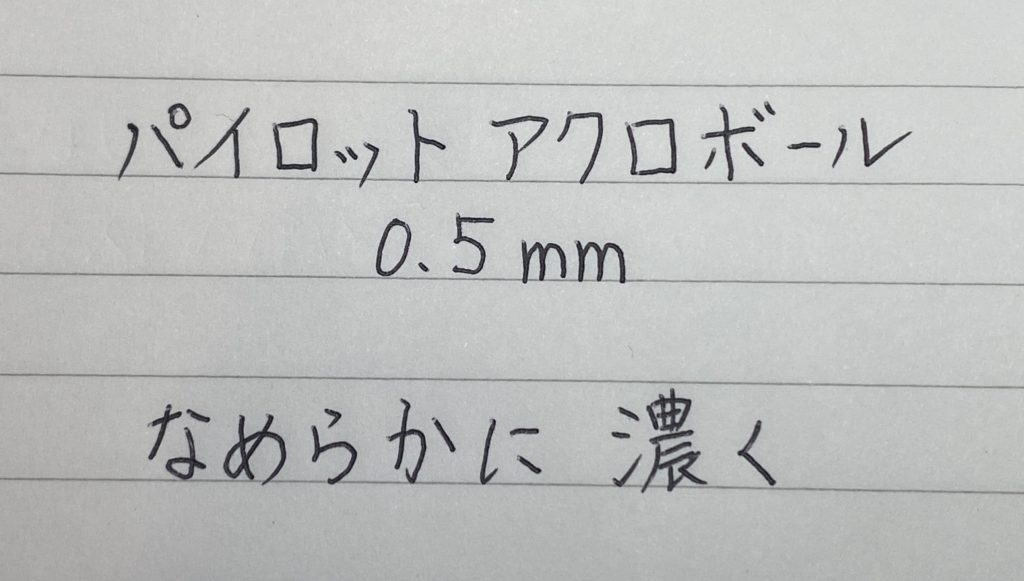 パイロット アクロボール
0.5 mm
なめらかに 濃く